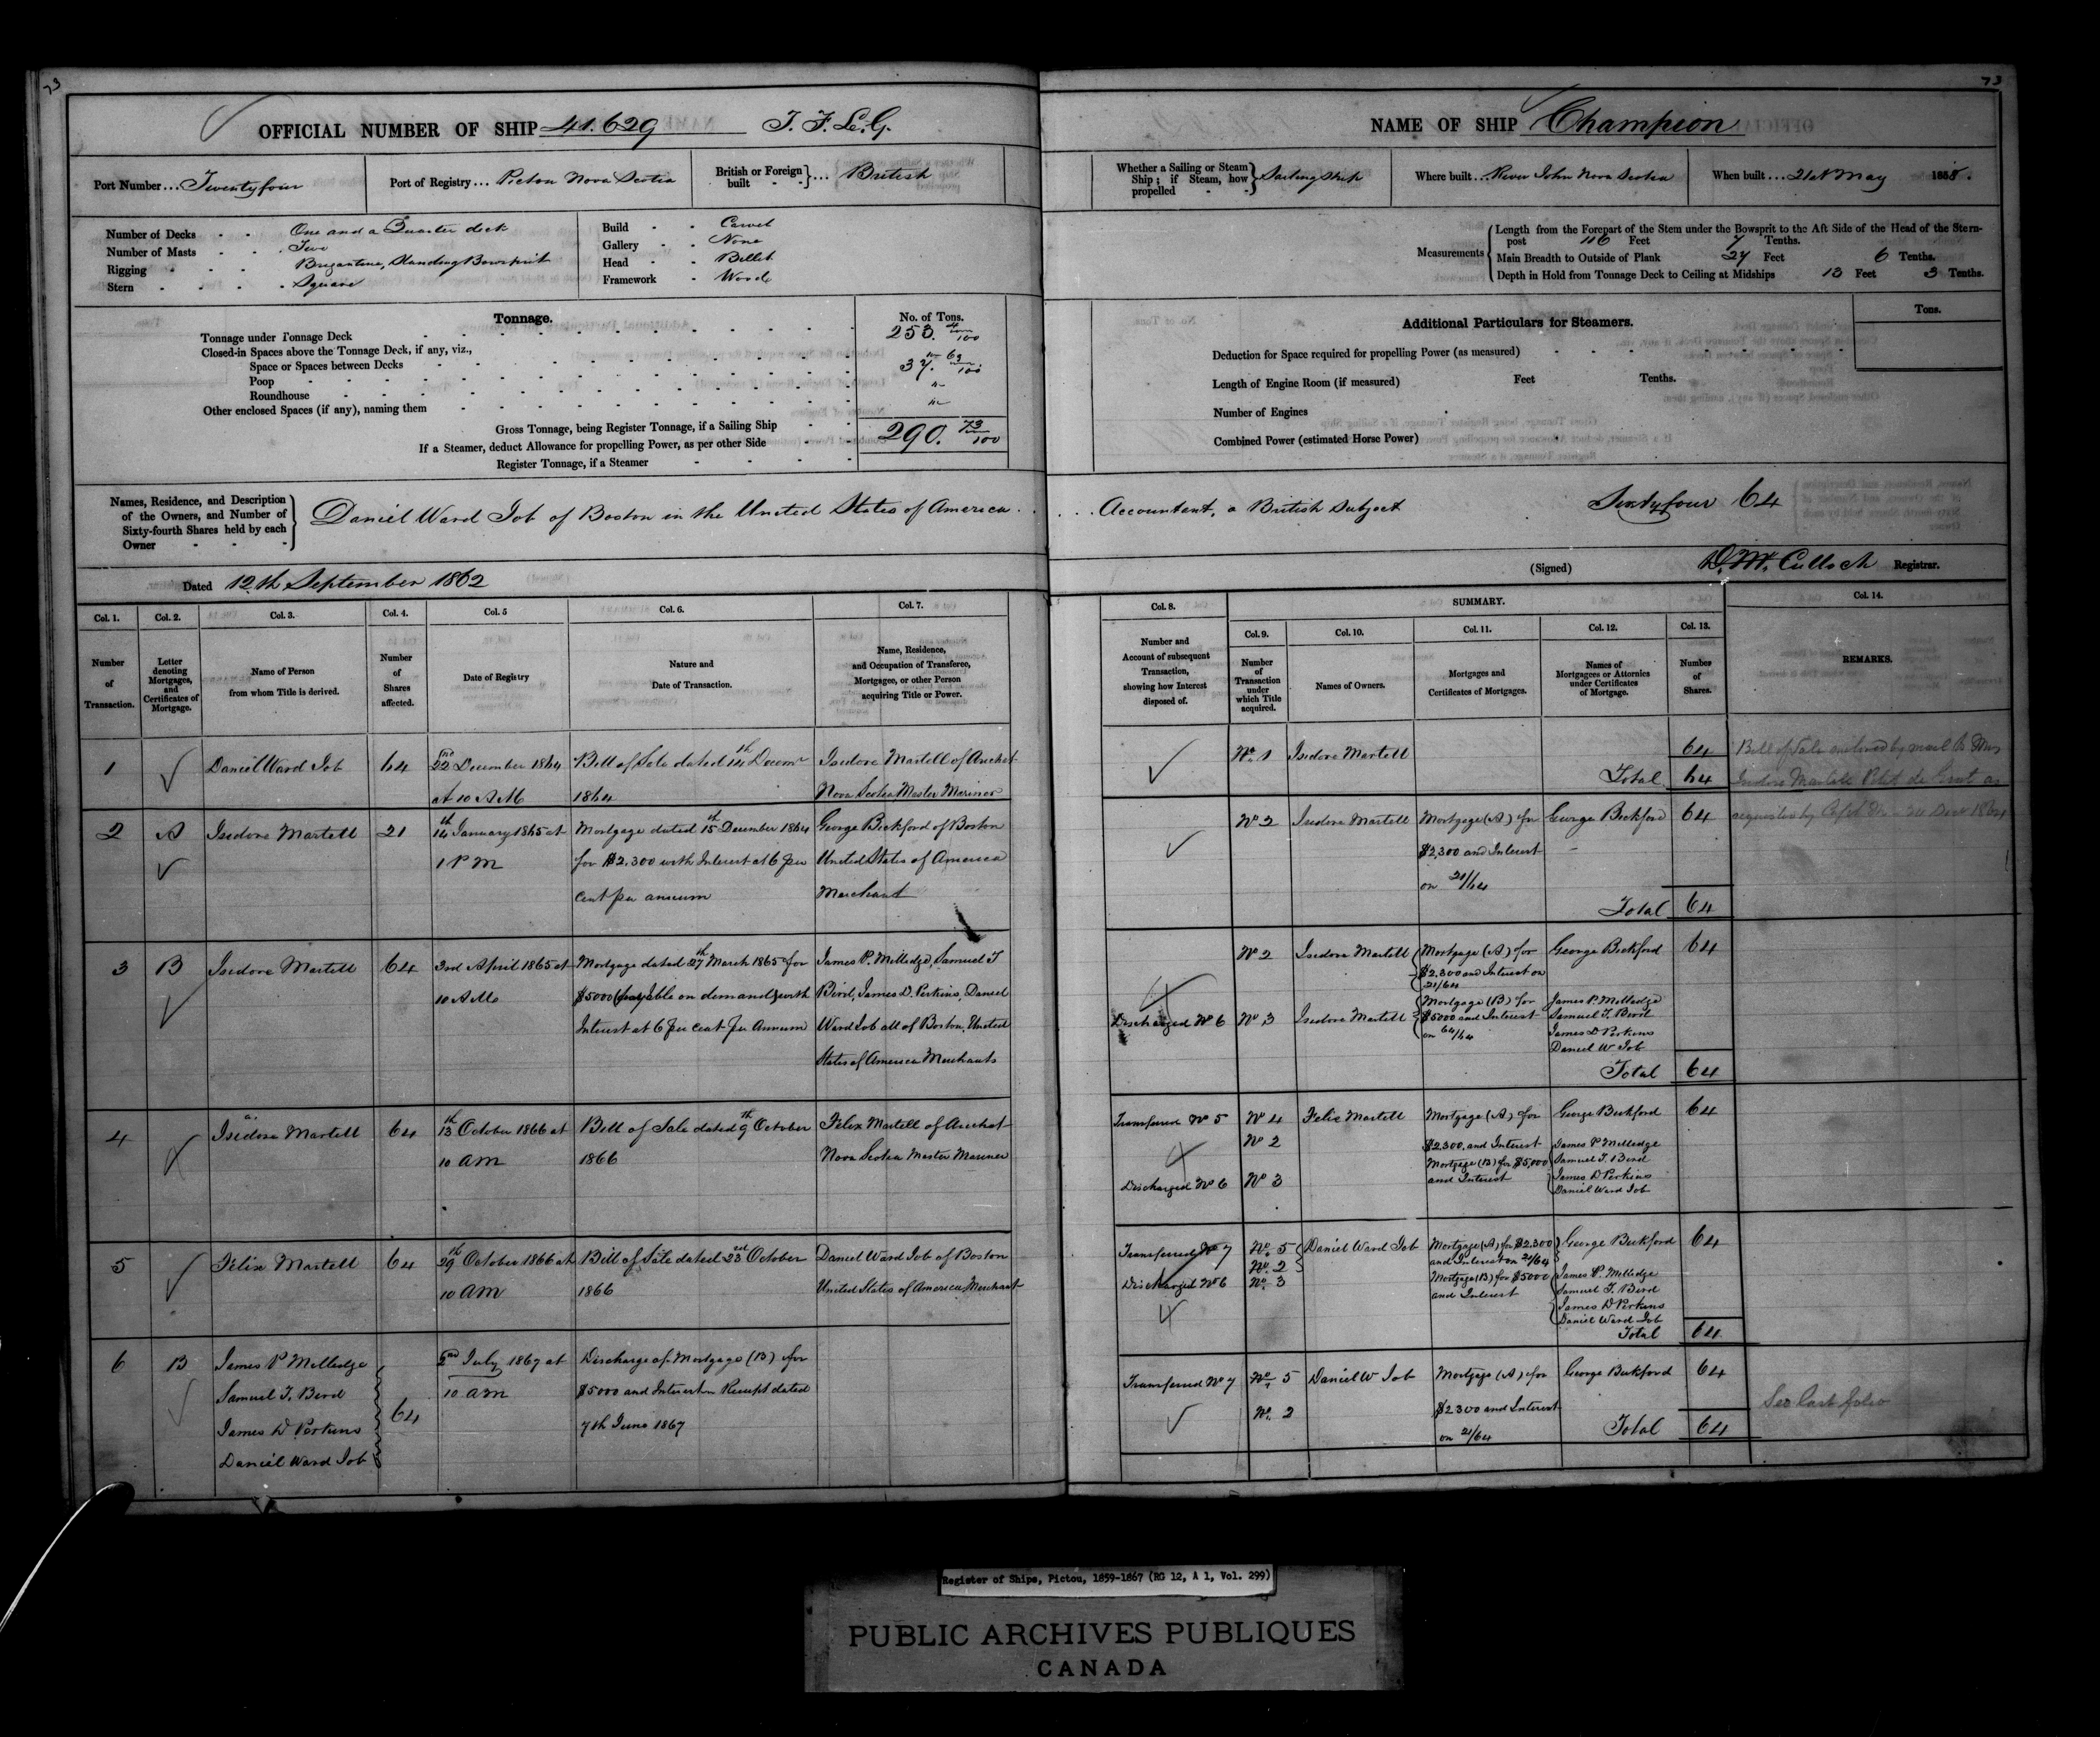 73
73
OFFICIAL NUMBER OF SHIP 41.629 T. F. L. G.
NAME OF SHIP Champion
Port Number ... Twenty four
Port of Registry ... Pictou Nova Scotia
British or Foreign built } ... British
Whether a Sailing or Steam Ship; if Steam, how propelled } Sailing Ship
Where built ... River John Nova Scotia
When built ... 21st May 1858.
Number of Decks One and a Quarter deck
Number of Masts Two
Rigging Brigantine, Standing Bowsprit
Stern Square
Build Carvel
Gallery None
Head Billet
Framework Wood
Measurements
Length from the Forepart of the Stem under the Bowsprit to the Aft Side of the Head of the Stern-
post 116 Feet 7 Tenths.
Main Breadth to Outside of Plank 27 Feet 6 Tenths.
Depth in Hold from Tonnage Deck to Ceiling at Midships 13 Feet 3 Tenths.
Tonnage.
No. of Tons.
Tonnage under Tonnage Deck 253. 4/100
Closed-in Spaces above the Tonnage Deck, if any, viz.,
Space or Spaces between Decks "
Poop 37. 69/100
Roundhouse "
Other enclosed Spaces (if any), naming them "
Gross Tonnage, being Register Tonnage, if a Sailing Ship 290. 73/100
If a Steamer, deduct Allowance for propelling Power, as per other Side
Register Tonnage, if a Steamer
Additional Particulars for Steamers.
Tons.
Deduction for Space required for propelling Power (as measured)
Length of Engine Room (if measured) Feet Tenths.
Number of Engines
Combined Power (estimated Horse Power)
Names, Residence, and Description
of the Owners, and Number of
Sixty-fourth Shares held by each
Owner
Daniel Ward Job of Boston in the United States of America . . . . Accountant, a British Subject Sixtyfour 64
Dated 12th September 1862
(Signed) D. McCulloch Registrar.
Col. 1. Number of Transaction.
Col. 2. Letter denoting Mortgages, and Certificates of Mortgage.
Col. 3. Name of Person from whom Title is derived.
Col. 4. Number of Shares affected.
Col. 5 Date of Registry
Col. 6. Nature and Date of Transaction.
Col. 7. Name, Residence, and Occupation of Transferee, Mortgagee, or other Person acquiring Title or Power.
Col. 8. Number and Account of subsequent Transaction, showing how Interest disposed of.
SUMMARY.
Col. 9. Number of Transaction under which Title acquired.
Col. 10. Names of Owners.
Col. 11. Mortgages and Certificates of Mortgages.
Col. 12. Names of Mortgagees or Attornies under Certificates of Mortgage.
Col. 13. Number of Shares.
Col. 14. REMARKS.
1 Daniel Ward Job 64 22nd December 1864 Bill of Sale dated 14th Decemr Isidore Martell of Arichat
at 10 AM 1864 Nova Scotia Master Mariner
No. 1 Isidore Martell 64
Total 64
Bill of Sale enclosed by mail to Mrs
Isidore Martell Petit de Grat as
requested by Capt
2 A Isidore Martell 21 14th January 1865 at Mortgage dated 15th December 1864 George Bickford of Boston
1 PM for $2.300 with Interest at 6 per United States of America
cent per annum Merchant
No 2 Isidore Martell Mortgage (A) for George Bickford 64
$2,300 and Interest
on 21/64
Total 64
3 B Isidore Martell 64 3rd April 1865 at Mortgage dated 27th March 1865 for James P. Milledge, Samuel T
10 AM $5000 (payable on demand) with Bird, James D. Perkins, Daniel
Interest at 6 per cent per Annum Ward Job all of Boston, United
States of America Merchants
No 2 Isidore Martell Mortgage (A) for George Bickford 64
$2.300 and Interest on
21/64
Discharged No 6 No 3 Isidore Martell Mortgage (B) for James P. Milledge
$5000 and Interest Samuel T. Bird
on 64/64 James D Perkins
Daniel W Job
Total 64
4 Isidore Martell 64 13th October 1866 at Bill of Sale dated 9th October Felix Martell of Arichat
10 AM 1866 Nova Scotia Master Mariner
Transferred No 5 No 4 Felix Martell Mortgage (A) for George Bickford 64
No 2 $2300. and Interest James P Milledge
Mortgage (B) for $5,000 Samuel T. Bird
Discharged No 6 No 3 and Interest James D Perkins
Daniel Ward Job
5 Felix Martell 64 29th October 1866 at Bill of Sale dated 23rd October Daniel Ward Job of Boston
10 AM 1866 United States of America Merchant
Transferred No 7 No. 5 Daniel Ward Job Mortgage (A) for $2.300 George Bickford 64
No. 2 and Interest on 21/64
Discharged No 6 No. 3 Mortgage (B) for $5000 James P. Milledge
and Interest Samuel T. Bird
James D Perkins
Daniel Ward Job
Total 64
6 B James P Milledge 2nd July 1867 at Discharge of Mortgage (B) for
Samuel T. Bird 10 AM $5000 and Interest Receipt dated
James D Perkins 64 7th June 1867
Daniel Ward Job
Transferred No 7 No. 5 Daniel W Job Mortgage (A) for George Bickford 64
No. 2 $2300 and Interest
on 21/64 Total 64
See last folio
Register of Ships, Pictou, 1859-1867 (RG 12, A 1, Vol. 299)
PUBLIC ARCHIVES PUBLIQUES
CANADA